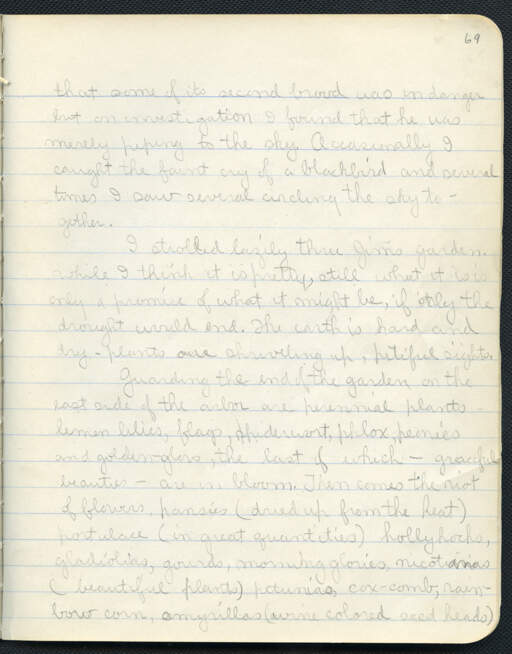 69
that some of its second brood was in danger
but on investigation I found that he was
merely peeping to the sky. Occasionally I
caught the faint cry of a blackbird and several
times I saw several circling the sky to-
gether.
I strolled lazily thru Jim's garden.
While I think it is pretty, still what it is is
only a promise of what it might be, if only the
drought would end. The earth is hard and
dry - plants are shriveling up, pitiful sights.
Guarding the end of the garden on the
east side of the arbor are perennial plants -
lemon lilies, flags, spiderwort, phlox, peonies
and golden-glow, the last of which - graceful
beauties - are in bloom. Then comes the riot
of flowers, pansies (dried up from the heat)
portulace (in great quantities) hollyhocks,
gladiolias, gourds, morning glories, nicotianas
(beautiful plants) petunias, cox-comb, rain-
bow corn, amyrillas (wine colored seed heads)